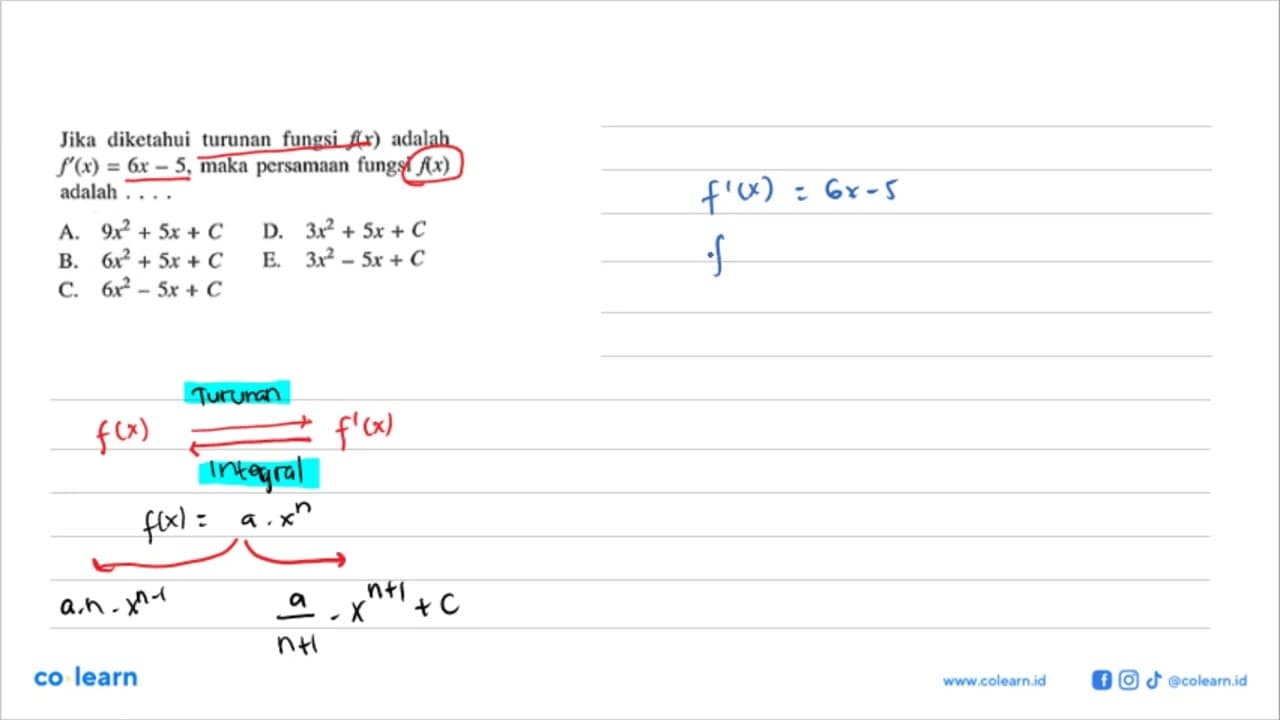 Jika diketahui turunan fungsi f(x) adalah
f'(x) = 6x – 5, maka persamaan fungsi f(x)
adalah . . . .
A. 9x² + 5x + C D. 3x² + 5x + C
B. 6x² + 5x + C E. 3x² – 5x + C
C. 6x² – 5x + C
f'(x) = 6x - 5
∫
Turunan
f(x) f'(x)
Integral
f(x) = a . x^n
a.n . x^{n-1} a/(n+1) . x^{n+1} + C
co learn
www.colearn.id @colearn.id